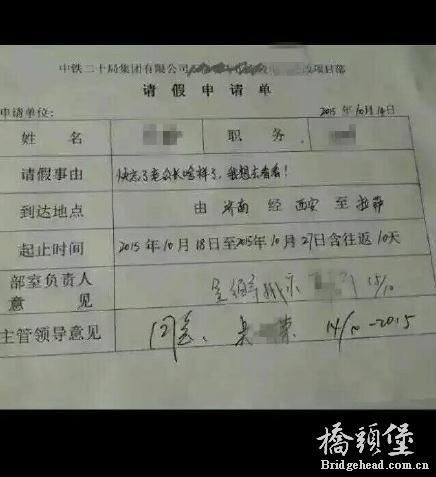 中铁二十局集团有限公司 项目部
请假申请单
申请单位: 2015年10月14日
姓名 职务
请假事由 快忘了老公长啥样了,我想去看看!
到达地点 由 济南 经 西安 至 拉萨
起止时间 2015年10月18日至2015年10月27日含往返10天
部室负责人
意见 15/10
主管领导意见 同意、吴 14/10-2015
橋頭堡
Bridgehead.com.cn